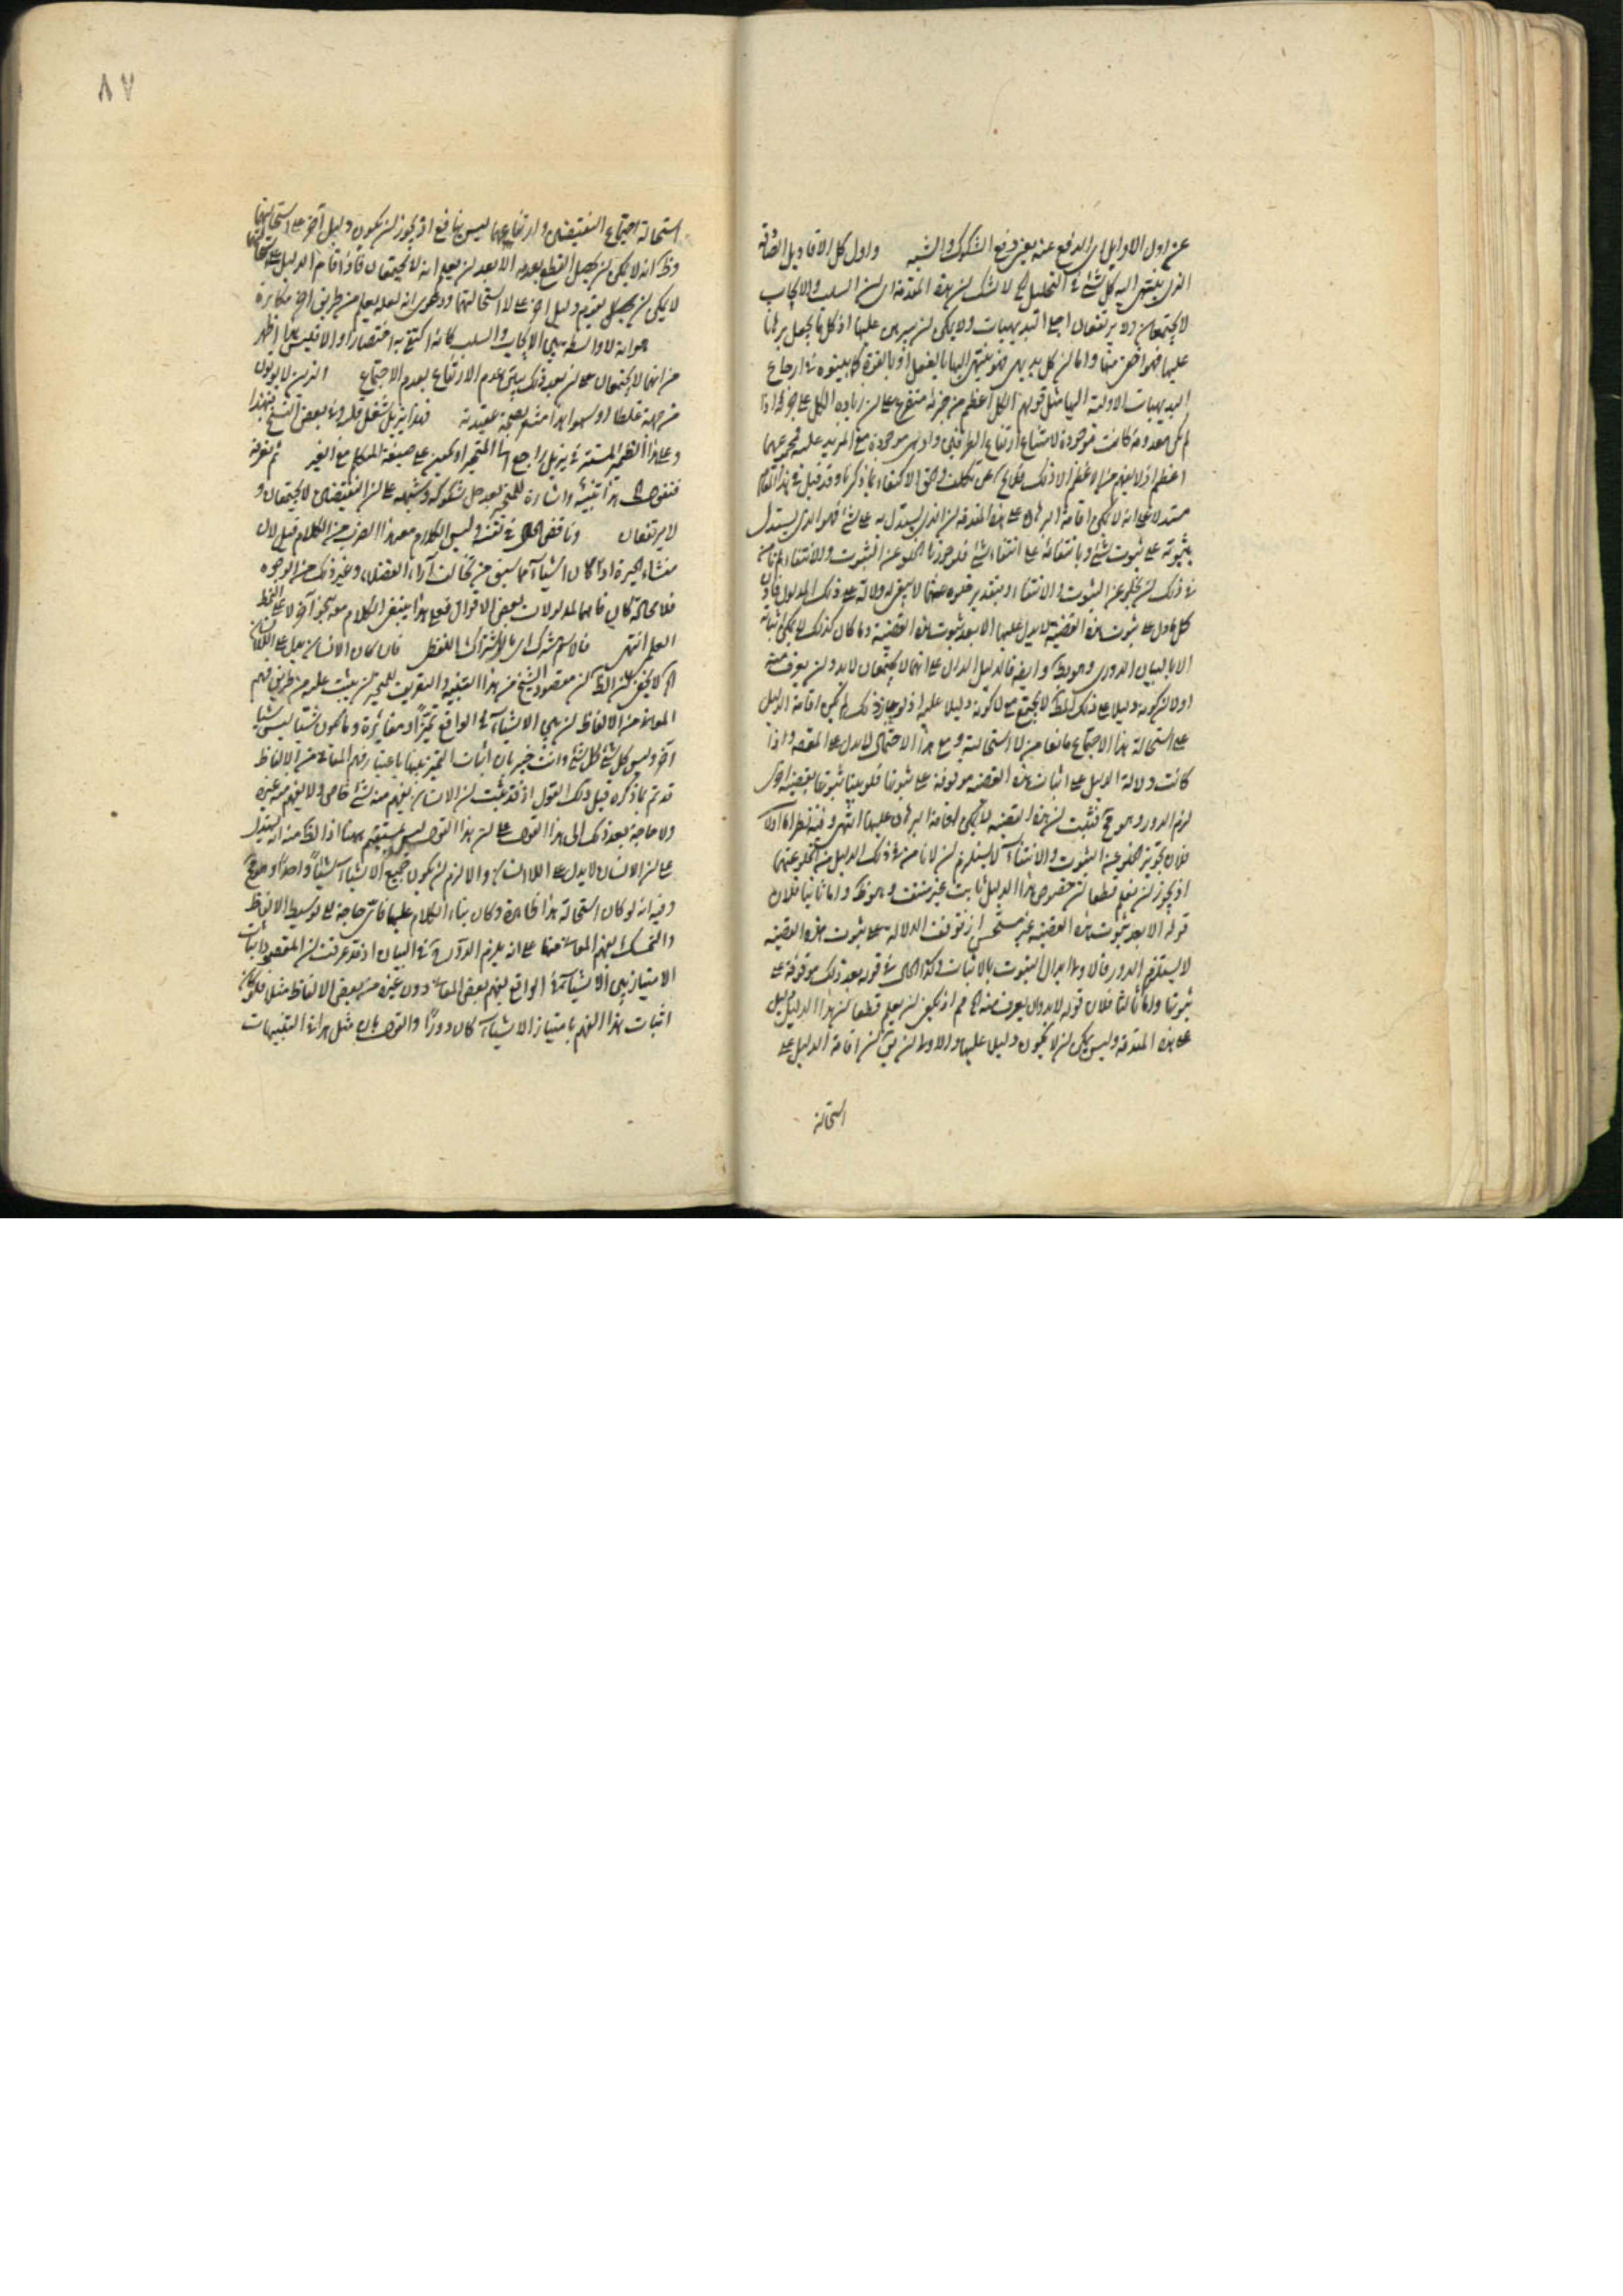 عن اول الاوايل اى الدفع عنه يعنى دفع الشكوك والشبه واول كل الاقاويل الصادقة
الذى ينتهى اليه كل شئ فى التحليل الخ لا شك ان هذه المقدمة اى ان السلب والايجاب
لا يجتمعان ولا يرتفعان اجلى البديهيات ولا يمكن ان يبرهن عليها اذ كل ما يجعل برهانا
عليها فهو اخفى منها واما ان كل بديهى فهو ينتهى اليها بالفعل او بالقوة كما بينوه فى ارجاع
البديهيات الاولية اليها مثل قولهم الكل اعظم من جزئه متفرع على ان زيادة الكل على جزئه اذا
لم يكن معدومة كانت موجودة لامتناع ارتفاع الطرفين واذ هى موجودة مع المزيد عليه فمجموعهما
اعظم اذ لا يفهم من الاعظم الا ذلك
مستدلا على انه لا يمكن اقامة البرهان على هذه المقدمة ان الذى يستدل به على شئ فهو الذى يستدل
بثبوته على ثبوت شئ وبانتفائه على انتفاء شئ فلو جوزنا الخلو عن الثبوت والانتفاء لم نأمن
فى ذلك ان يخلو عن الثبوت والانتفاء وبتقدير خلوه عنهما لا يبقى له دلالة على ذلك المدلول فاذن
كل ما دل على ثبوت هذه القضية لا يدل عليها الا بعد ثبوت هذه القضية وما كان كذلك لا يمكن اثباته
الا بالبيان الدورى وهو بط وايضا فالدليل الدال على انهما لا يجتمعان لا بد وان يعرف منه
اولا ان كونه دليلا على ذلك لا يجتمع مع لا كونه دليلا عليه اذ لو جاز ذلك لم يكن اقامة الدليل
على استحالة هذا الاجتماع مانعا من لا استحالته ومع هذا الاحتمال لا يدل على المقصود واذا
كانت دلالة الدليل على اثبات هذه القضية موقوفة على ثبوتها فلو بينا ثبوتها بقضية اخرى
لزم الدور وهو مح فثبت ان هذه القضية لا يمكن اقامة البرهان عليها انتهى وفيه نظر اما اولا
فلان تجويز الخلو عن الثبوت والانتفاء لا يستلزم ان لا نأمن فى ذلك الدليل من الخلو عنهما
اذ يجوز ان نعلم قطعا ان خصوص هذا الدليل ثابت غير منتف وهو ظ واما ثانيا فلان
قوله الا بعد ثبوت هذه القضية غير مستحسن اذ توقف الدلالة على ثبوت هذه القضية
لا يستلزم الدور فالاولى ابدال الثبوت بالاثبات وكذا الحال فى قوله بعد ذلك موقوفة على
ثبوتها واما ثالثا فلان قوله لا بد وان يعرف منه الخ مم اذ يكفى ان يعلم قطعا ان هذا الدليل دليل
على هذه المقدمة وليس يمكن ان لا يكون دليلا عليها والاولى ان يق ان اقامة الدليل على
استحالة
٨٧
استحالة اجتماع النقيضين وارتفاعهما ليس بنافع اذ يجوز ان يكون دليل آخر على لا استحالتهما
وظ انه لا يمكن ان يحصل القطع بعدمه الا بعد ان يعلم انه لا يجتمعان فاذا اقام الدليل على
لا يمكن ان يحصل بعدم دليل آخر على لا استحالتهما ودعوى انه لعله يعلم من طريق آخر مكابرة
هو انه لا واسطة بين الايجاب والسلب كانه اكتفى به اختصارا والا فليس هذا اظهر
من انهما لا يجتمعان على ان بعد ذلك يبقى عدم الارتفاع بعدم الاجتماع
من جهة غلطا او سهوا هذا مشعر بصحة عقيدته
ثم نعرفه
فنقول الخ هذا تنبيه واشارة للمتحير بعد حل شكوكه وشبهه على ان النقيضين لا يجتمعان و
لا يرتفعان
منشأ الحيرة اذا كان اشياء مما سبق من تخالف آراء الفضلاء وغير ذلك من الوجوه
فلا محالة كان فاهما لمدلولات بعض الاقوال
العلم انتهى فالاسم مشترك اى بالاشتراك اللفظى فان كان الانسان يدل على اللاانسان
الخ لا يخفى ان الظ ان مقصود الشيخ من هذا التنبيه والتعريف للمتحير ان يثبت عليه من طريق فهم
المعانى من الالفاظ ان بين الاشياء فى الواقع تميزا ومغايرة وما يكون شيئا ليس شيئا
آخر وليس كل شئ كل شئ وانت خبير بان اثبات التميز بينها باعتبار فهم المعانى من الالفاظ
قد تم بما ذكره قبل ذلك القول اذ قد ثبت ان الانسان يفهم منه شئ خاص ولا يفهم منه غيره
ولا حاجة بعد ذلك الى هذا القول على ان هذا القول ليس بمستقيم ههنا اذ الظ منه انه يستدل
على ان الانسان لا يدل على اللاانسان والا لزم ان يكون جميع الاشياء شيئا واحدا وهو مح
وفيه انه لو كان استحالة هذا ظاهرة وكان بناء الكلام عليها فاى حاجة الى توسيط الالفاظ
والتمسك بفهم المعانى منها على انه يلزم الدور فى البيان اذ قد عرفت ان المقصود اثبات
الامتياز بين الاشياء فى الواقع بفهم بعض المعانى دون غيره من بعض الالفاظ مثلا فلو كان
اثبات هذا الفهم بامتياز الاشياء كان دورا والقول بان مثل هذه التنبيهات